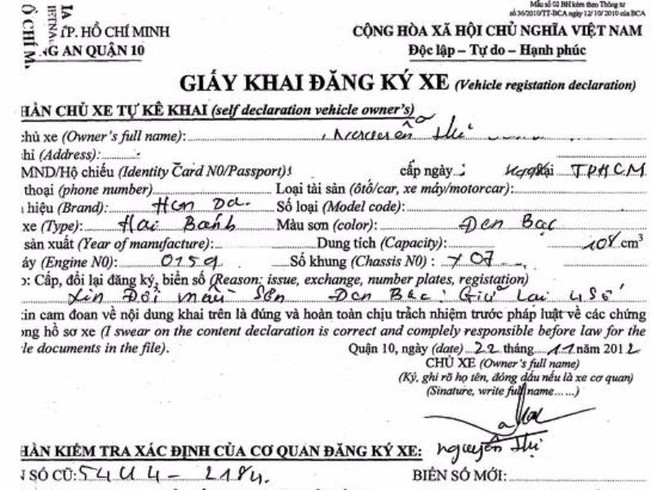 Mẫu số 02 BH kèm theo Thông tư
số 36/2010/TT-BCA ngày 12/10/2010 của BCA
TP. HỒ CHÍ MINH
CỘNG HÒA XÃ HỘI CHỦ NGHĨA VIỆT NAM
NG AN QUẬN 10
Độc lập – Tự do – Hạnh phúc
GIẤY KHAI ĐĂNG KÝ XE (Vehicle registation declaration)
HẦN CHỦ XE TỰ KÊ KHAI (self declaration vehicle owner's)
chủ xe (Owner's full name): Nguyễn Thị
hi (Address):
MND/Hộ chiếu (Identity Card N0/Passport): cấp ngày tại TPHCM
thoại (phone number) Loại tài sản (ôtô/car, xe máy/motorcar):
hiệu (Brand): Hon Da. Số loại (Model code):
xe (Type): Hai Bánh Màu sơn (color): Đen Bạc
sản xuất (Year of manufacture): Dung tích (Capacity): 108 cm3
áy (Engine N0): 0159 Số khung (Chassis N0): 707
o: Cấp, đổi lại đăng ký, biển số (Reason: issue, exchange, number plates, registation)
Xin Đổi màu Sơn Đen Bạc; Giữ lại 4 Số
in cam đoan về nội dung khai trên là đúng và hoàn toàn chịu trách nhiệm trước pháp luật về các chứng
ong hồ sơ xe (I swear on the content declaration is correct and complely responsible before law for the
le documents in the file).
Quận 10, ngày (date) 22 tháng 11 năm 2012
CHỦ XE (Owner's full name)
(Ký, ghi rõ họ tên, đóng dấu nếu là xe cơ quan)
(Sinature, write full name......)
Nguyễn Thị
HẦN KIỂM TRA XÁC ĐỊNH CỦA CƠ QUAN ĐĂNG KÝ XE:
N SỐ CŨ: 54U4-2184. BIỂN SỐ MỚI: